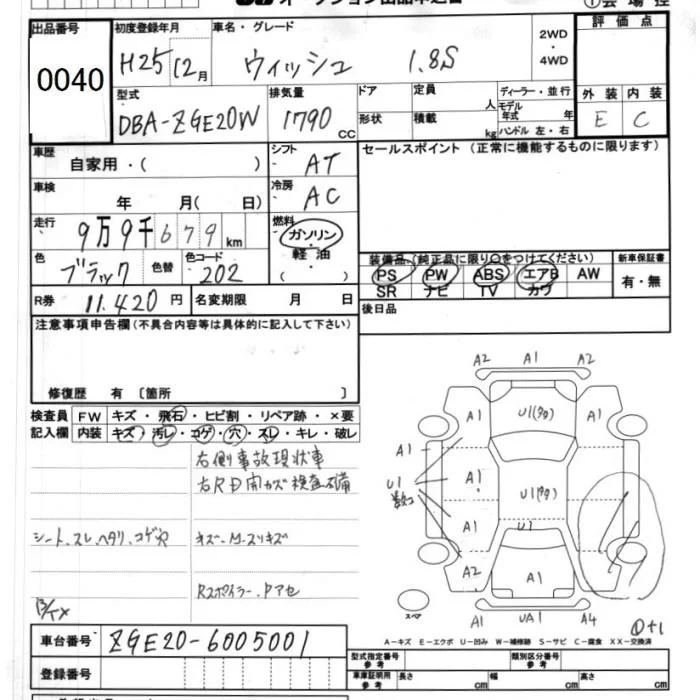 オークション出品申込書
①会場控
出品番号 初度登録年月 車名・グレード 2WD・4WD 評価点
0040 H25 12月 ウィッシュ 1.8S
型式 排気量 ドア 定員 人 ディーラー・並行 外装 内装
DBA-ZGE20W 1790 CC 形状 積載 kg モデル年式 年 ハンドル 左・右 E C
車歴 自家用・( ) シフト AT セールスポイント(正常に機能するものに限ります)
車検 年 月( 日) 冷房 AC
走行 9万9千679km 燃料 ガソリン・軽油( )
色 ブラック 色替 色コード 202 装備品(純正品に限り○をつけてください) 新車保証書
PS PW ABS エアB AW 有・無
SR ナビ TV カワ
R券 11.420円 名変期限 月 日 後日品
注意事項申告欄(不具合内容等は具体的に記入して下さい)
修復歴 有〔箇所 〕
検査員記入欄 FW キズ・飛石・ヒビ割・リペア跡・×要
内装 キズ・汚レ・コゲ・穴・スレ・キレ・破レ
右側事故現状車
右RD開カズ検査不備
シート、スレ、ヘタリ、コゲ穴 キズ・M・スリキズ
Rスポイラー、Pアセ
A2 A1 A2
A1 U1(99) A1
A1
U1 A1 U1(99)
数コ
A1 U1
A2 A1
A1 UA1 A4
スペア
A-キズ E-エクボ U-凹み W-補修跡 S-サビ C-腐食 XX-交換済
車台番号 ZGE20-6005001
登録番号
型式指定番号 参考 類別区分番号 参考
車庫証明用 参考 長さ cm 幅 cm 高さ cm